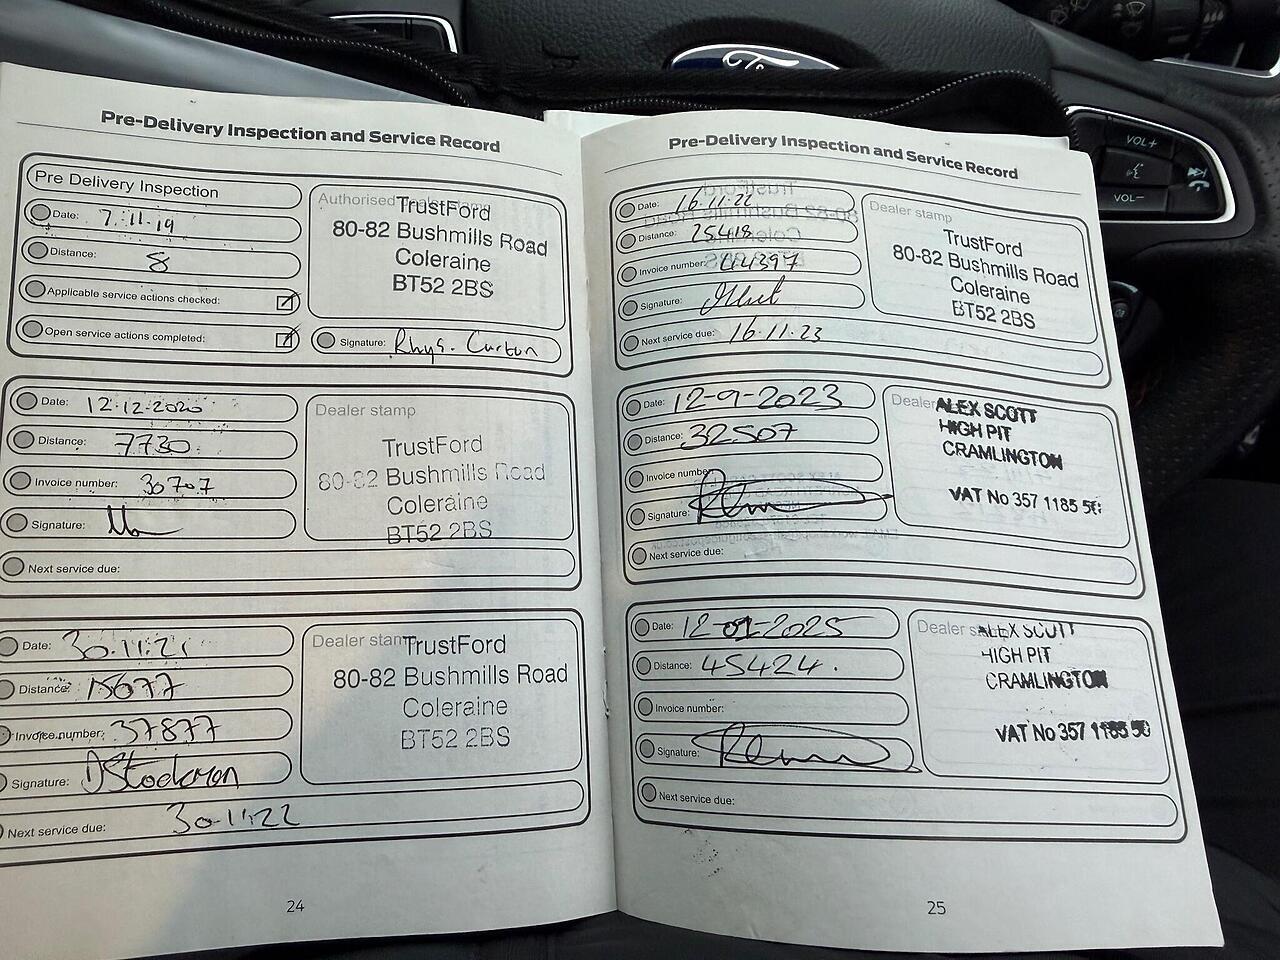 Pre-Delivery Inspection and Service Record
Pre Delivery Inspection
Date: 7.11.19
Distance: 8
Applicable service actions checked:
Open service actions completed:
Authorised Dealer stamp
TrustFord
80-82 Bushmills Road
Coleraine
BT52 2BS
Signature: Rhys. Curton
Date: 12-12-2020
Distance: 7730
Invoice number: 30707
Signature:
Next service due:
Dealer stamp
TrustFord
80-82 Bushmills Road
Coleraine
BT52 2BS
Date: 30.11.21
Distance: 15677
Invoice number: 37877
Signature: DStockman
Next service due: 30.11.22
Dealer stamp
TrustFord
80-82 Bushmills Road
Coleraine
BT52 2BS
24
Pre-Delivery Inspection and Service Record
Date: 16.11.22
Distance: 25418
Invoice number: 44397
Signature:
Next service due: 16.11.23
Dealer stamp
TrustFord
80-82 Bushmills Road
Coleraine
BT52 2BS
Date: 12-9-2023
Distance: 32507
Invoice number:
Signature:
Next service due:
Dealer
ALEX SCOTT
HIGH PIT
CRAMLINGTON
VAT No 357 1185 50
Date: 12-01-2025
Distance: 45424.
Invoice number:
Signature:
Next service due:
Dealer stamp
ALEX SCOTT
HIGH PIT
CRAMLINGTON
VAT No 357 1185 50
25
VOL+
VOL-